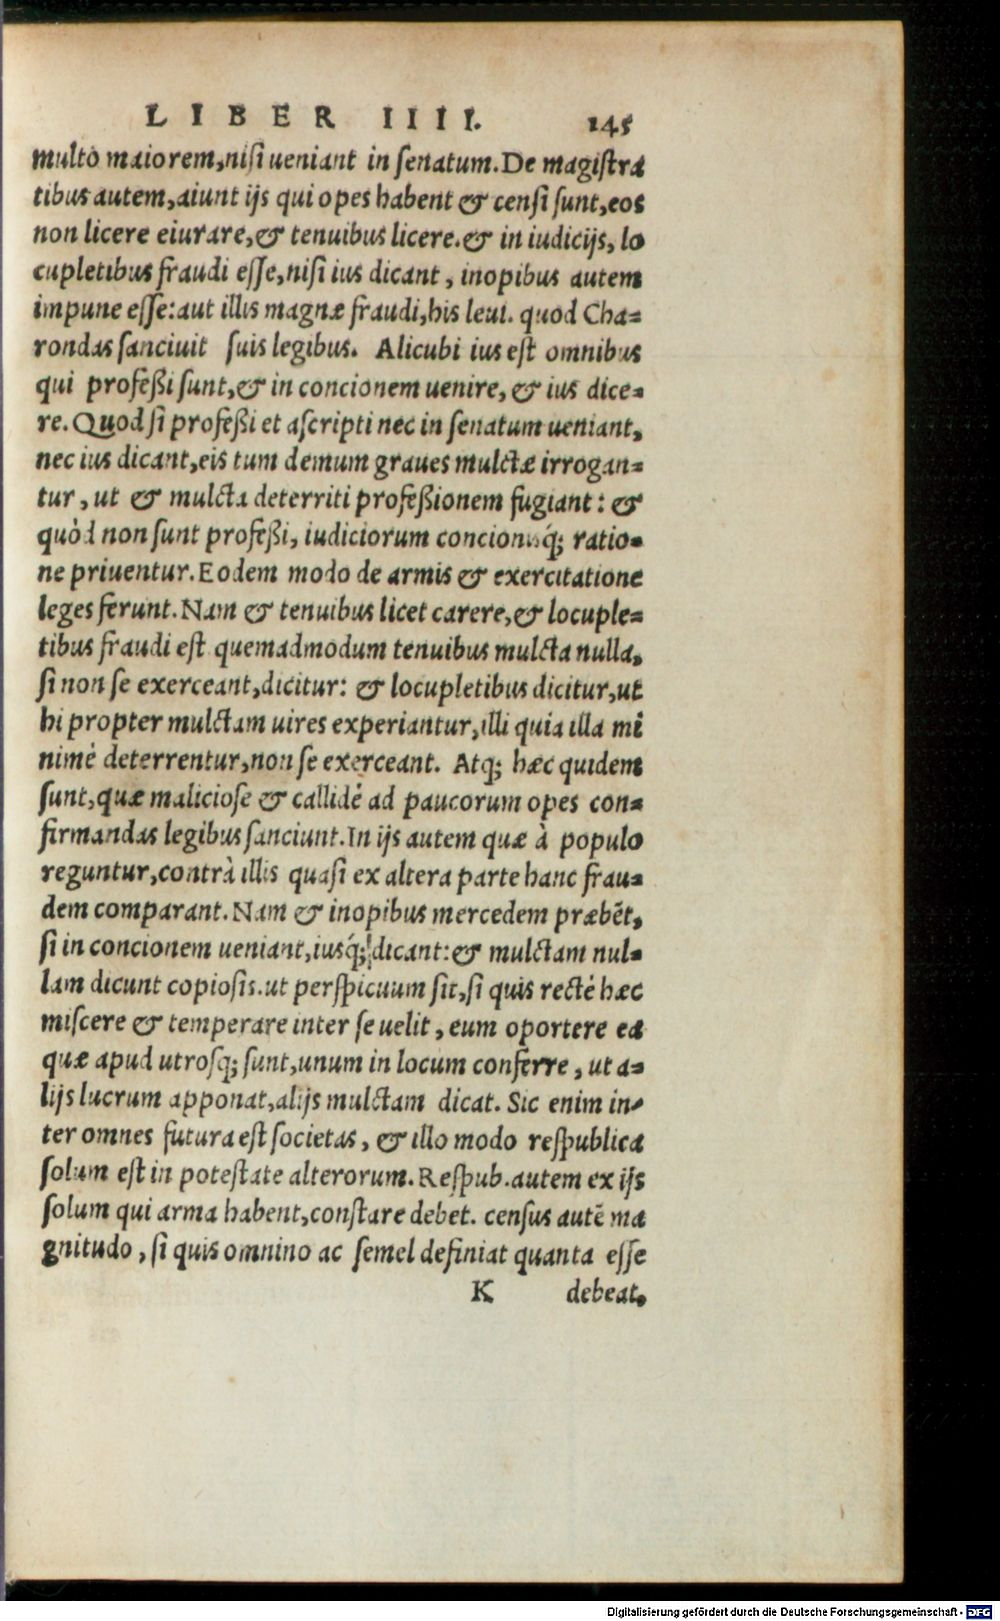 LIBER IIII. 145
multò maiorem,nisi ueniant in senatum.De magistra
tibus autem,aiunt ijs qui opes habent & censi sunt,eos
non licere eiurare,& tenuibus licere.& in iudicijs, lo
cupletibus fraudi esse,nisi ius dicant, inopibus autem
impune esse:aut illis magnæ fraudi,his leui. quod Cha=
rondas sanciuit suis legibus. Alicubi ius est omnibus
qui profeßi sunt,& in concionem uenire, & ius dice=
re.Quod si profeßi et ascripti nec in senatum ueniant,
nec ius dicant,eis tum demum graues mulctæ irrogan=
tur, ut & mulcta deterriti profeßionem fugiant: &
quòd non sunt profeßi, iudiciorum concionuq́; ratio=
ne priuentur.Eodem modo de armis & exercitatione
leges ferunt.Nam & tenuibus licet carere,& locuple=
tibus fraudi est quemadmodum tenuibus mulcta nulla,
si non se exerceant,dicitur: & locupletibus dicitur,ut
hi propter mulctam uires experiantur,illi quia illa mi
nimè deterrentur,non se exerceant. Atq; hæc quidem
sunt,quæ maliciose & callidè ad paucorum opes con=
firmandas legibus sanciunt.In ijs autem quæ à populo
reguntur,contrà illis quasi ex altera parte hanc frau=
dem comparant.Nam & inopibus mercedem præbēt,
si in concionem ueniant,iusq́; dicant:& mulctam nul=
lam dicunt copiosis.ut perspicuum sit,si quis rectè hæc
miscere & temperare inter se uelit, eum oportere ea
quæ apud utrosq; sunt,unum in locum conferre, ut a=
lijs lucrum apponat,alijs mulctam dicat. Sic enim in=
ter omnes futura est societas, & illo modo respublica
solum est in potestate alterorum.Respub.autem ex ijs
solum qui arma habent,constare debet. census autē ma
gnitudo, si quis omnino ac semel definiat quanta esse
K debeat,
Digitalisierung gefördert durch die Deutsche Forschungsgemeinschaft - DFG